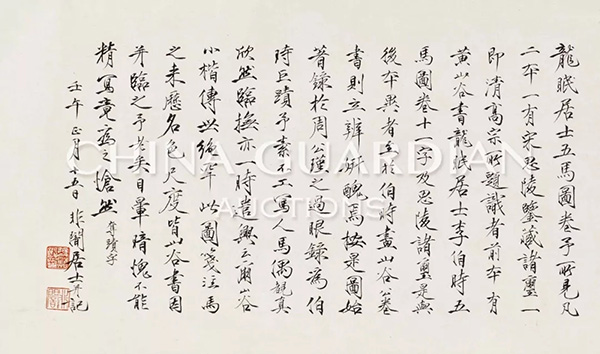 龍眠居士五馬圖卷予所見凡
二本一有宋思陵鑒藏諸璽一
即清高宗所題識者前本有
黃山谷書龍眠居士李伯時五
馬圖卷十一字及思陵諸璽是與
後本異者至於伯時畫山谷箋
書則立辨妍醜焉按是圖始
著錄於周公瑾之過眼錄為伯
時巨蹟予素不工寫人馬偶覩真
欣然臨撫亦一時喜興云爾山谷
小楷傳世絕罕此圖箋注馬
之來歷名色尺度皆山谷書因
并臨之予老矣目暈暗愧不能
精寫竟為之愴然 弆蹟字
壬午正月十五日非闇居士并記
CHINA GUARDIAN
AUCTIONS